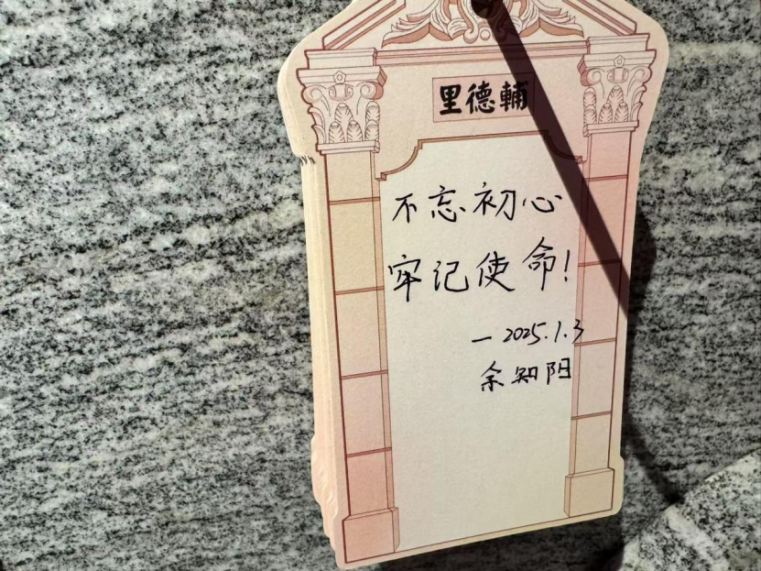 里德輔
不忘初心
牢记使命!
— 2025.1.3
余知阳